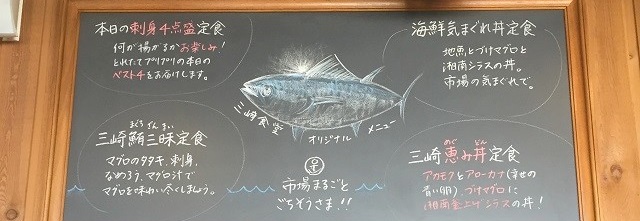 本日の刺身4点盛定食
何が揚がるかお楽しみ!
とれたてプリプリの本日の
ベスト4をお届けします。
海鮮気まぐれ丼定食
地魚とづけマグロと
湘南シラスの丼。
市場の気まぐれで。
三崎食堂
オリジナル
メニュー
市場まるごと
ごちそうさま!!
まぐろ ざんまい
三崎鮪三昧定食
マグロのタタキ、刺身、
なめろう、マグロ汁で
マグロを味わい尽くしましょう。
めぐ どん
三崎恵み丼定食
アカモクとアローカナ(幸せの
青い卵)、づけマグロに
湘南釜上げシラスの丼!